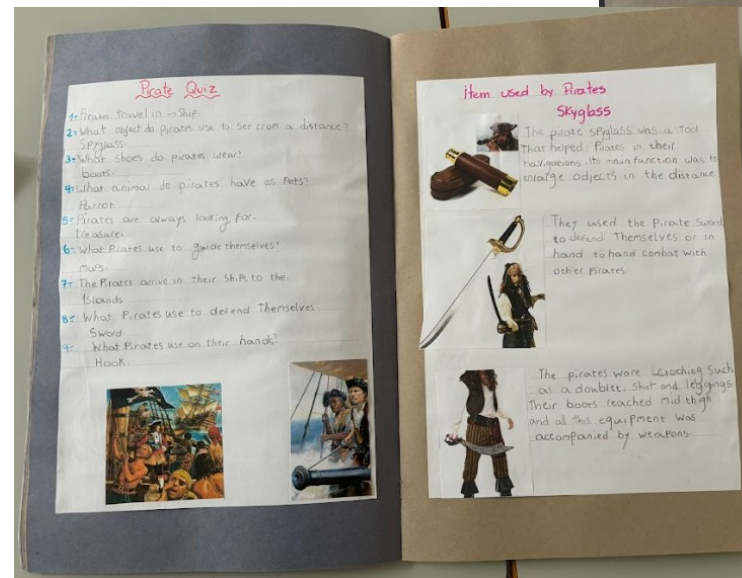 Pirate Quiz
1= Pirates travel in → Ship
2= What object do pirates use to see from a distance?
Spyglass
3= What shoes do pirates wear?
boots.
4= What animal do pirates have as Pets?
Parrot
5= Pirates are always looking for.
treasure.
6= What Pirates use to guide themselves?
maps.
7= The Pirates arrive in their Ships to the
Islands
8= What Pirates use to defend Themselves
Sword
9= What Pirates use on their hands?
Hook.
item used by Pirates
Skyglass
The pirate spyglass was a tool
that helped Pirates in their
navigations. Its main function was to
enlarge odjects in the distance
They used the Pirate Sword
to defend Themselves or in
hand to hand combat with
other pirates
The pirates wore such
as a doublet, shirt and leggings
Their boots reached mid thigh
and all this equipment was
accompanied by weapons.